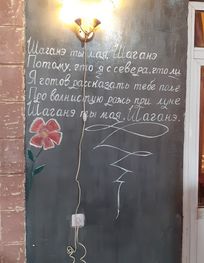 Шаганэ ты моя, Шаганэ
Потому, что я с севера, что ли
Я готов рассказать тебе поле
Про волнистую рожь при луне
Шаганэ ты моя, Шаганэ.